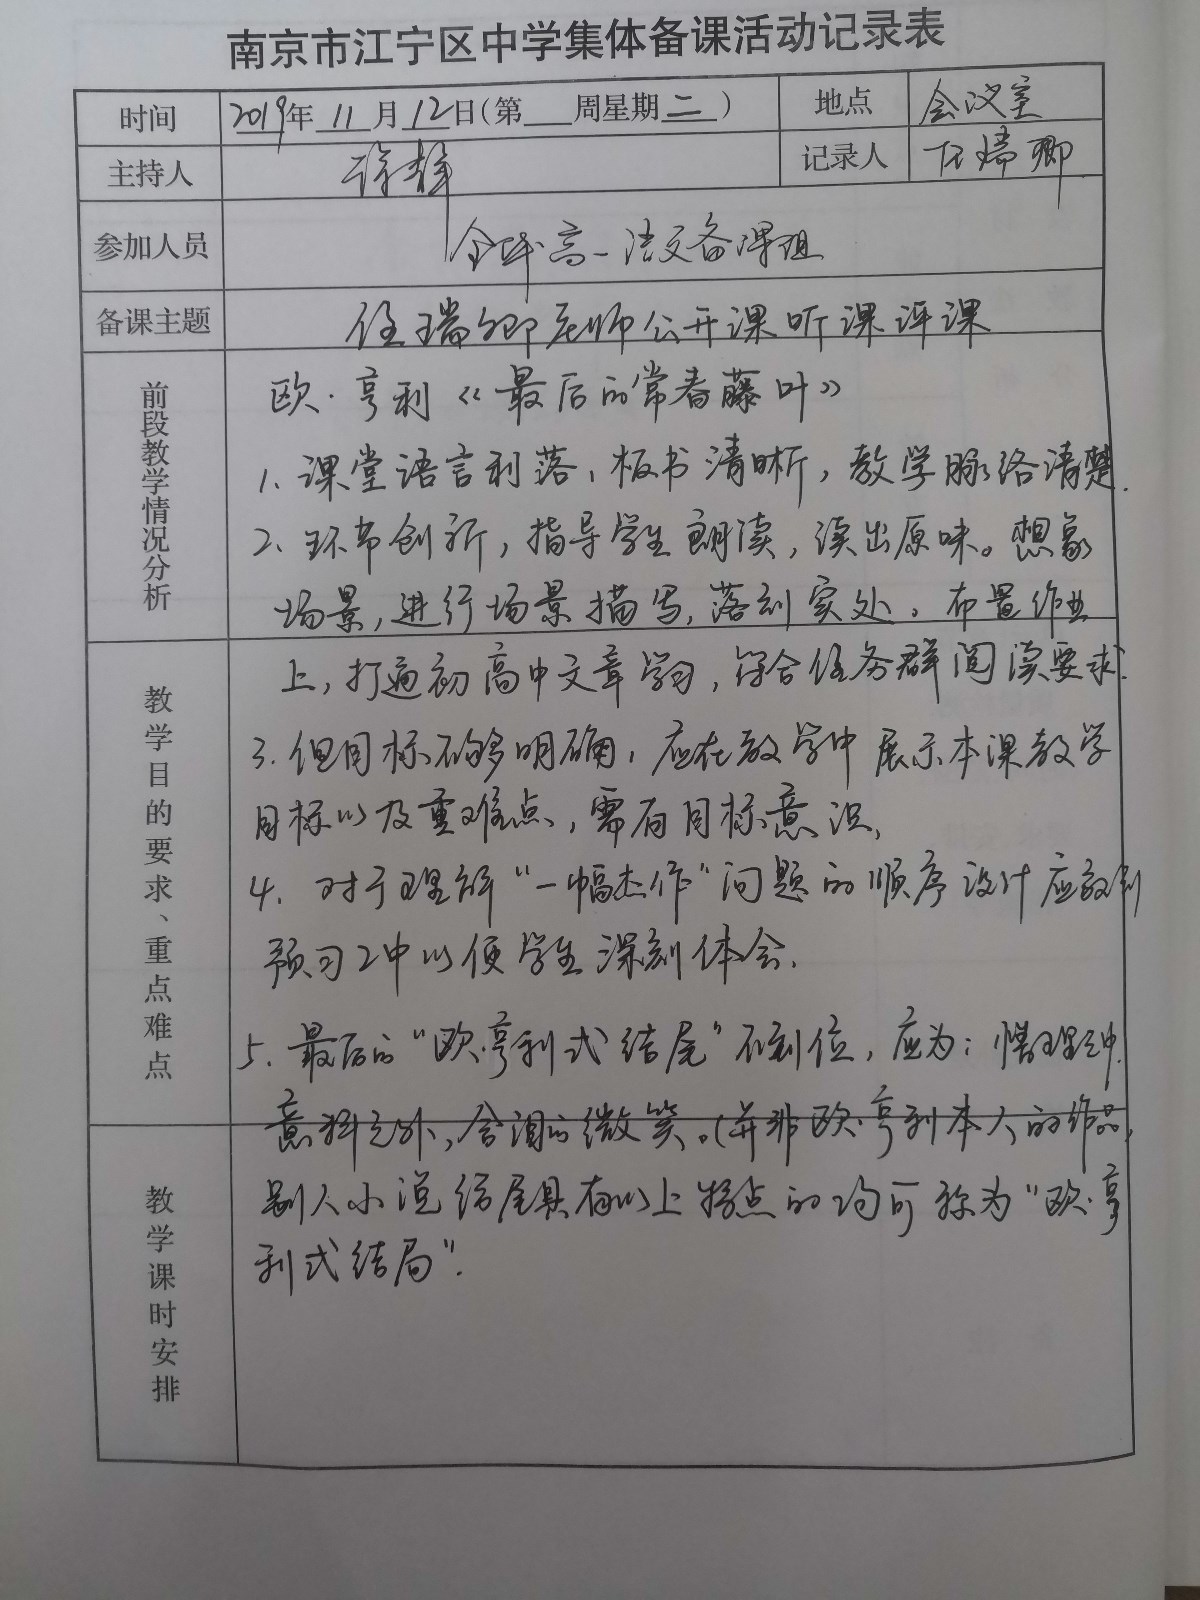 南京市江宁区中学集体备课活动记录表
时间 2019年 11 月 12 日(第 周星期 二 ) 地点 会议室
主持人 徐静 记录人 任瑞卿
参加人员 全体高一语文备课组
备课主题 任瑞卿老师公开课听课评课
前段教学情况分析
欧·亨利《最后的常春藤叶》
1. 课堂语言利落,板书清晰,教学脉络清楚.
2. 环节创新,指导学生朗读,读出原味。想象
场景,进行场景描写,落到实处。布置作业
教学目的要求、重点难点
上,打通初高中文章学习,符合任务群阅读要求.
3. 但目标不够明确,应在教学中展示本课教学
目标以及重难点,需有目标意识,
4. 对于理解“一幅杰作”问题的顺序设计应放到
预习2中以便学生深刻体会.
5. 最后的“欧·亨利式结尾”不到位,应为:情理之中.
意料之外,含泪的微笑。(并非欧·亨利本人的作品,
教学课时安排
别人小说结尾具有以上特点的均可称为“欧·亨
利式结局”.